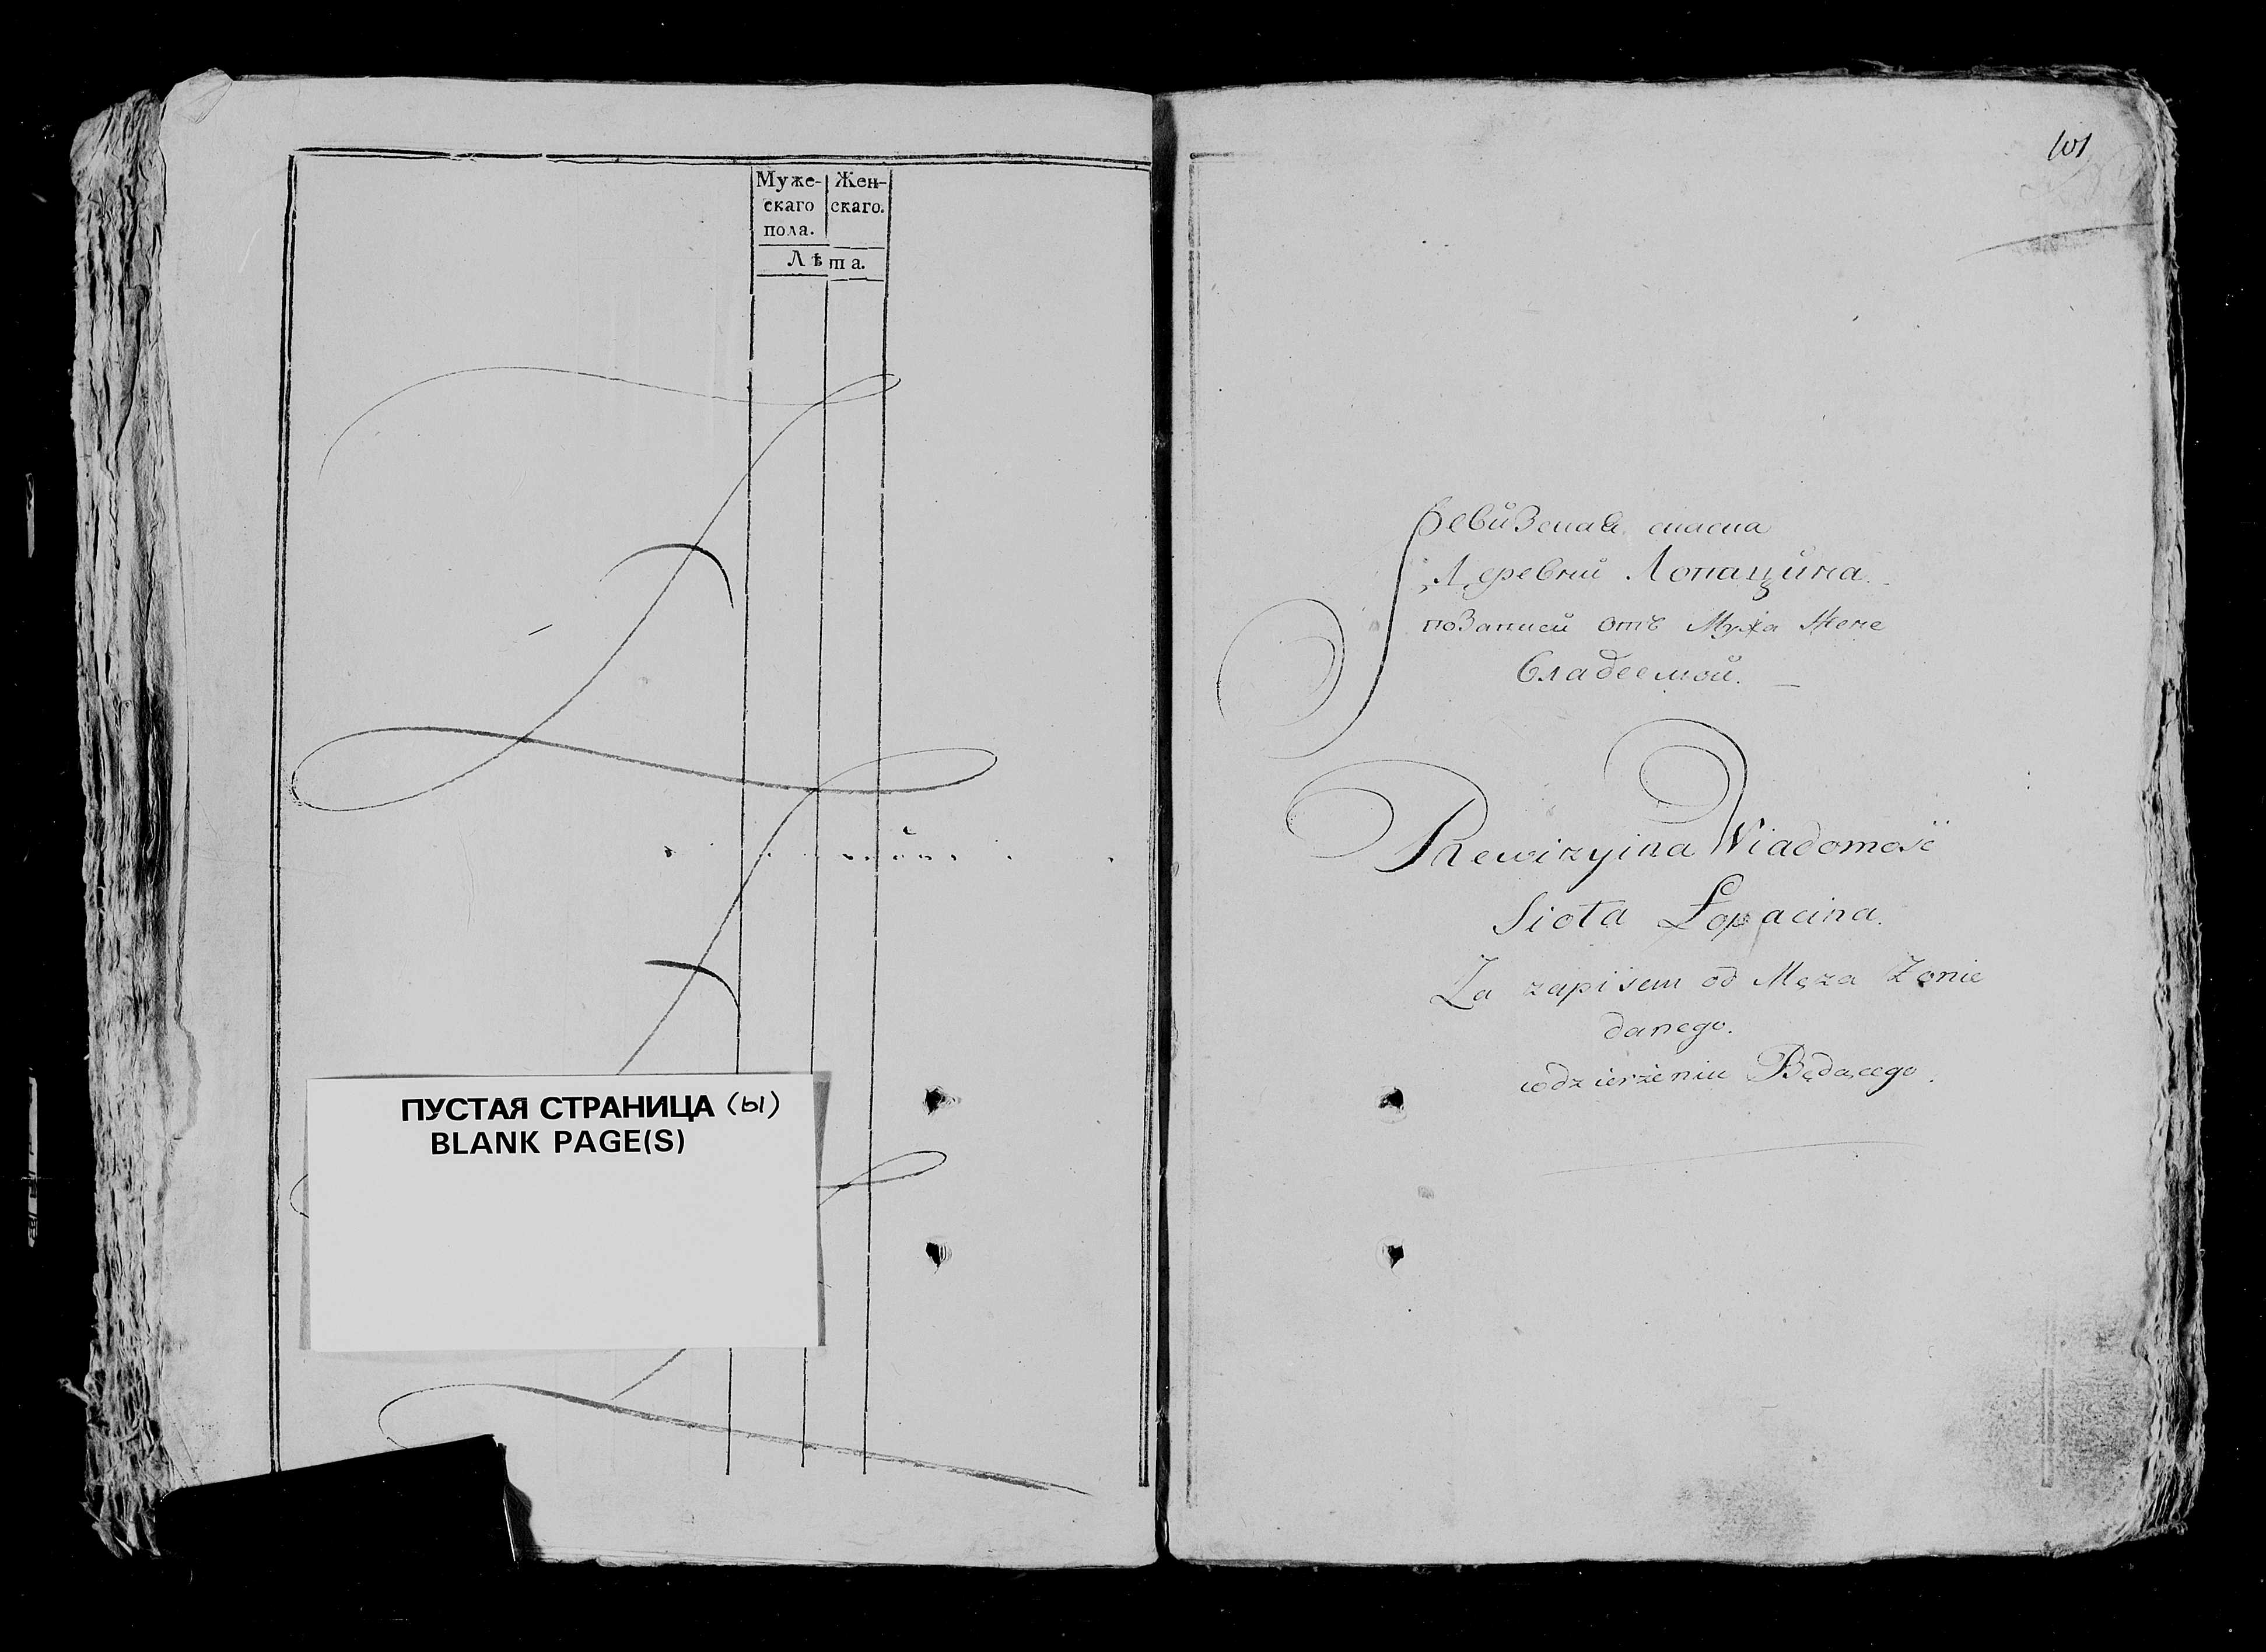 Муже- Жен-
скаго скаго.
пола.
Лѣта.
ПУСТАЯ СТРАНИЦА (ы)
BLANK PAGE(S)
101
Деревни Лопацина
по Записи отъ Мужа Жене
Владеемой.
Rewizyina Wiadomość
Sioła Łopacina.
Za zapisem od Męża Żonie
danego.
w dzierżeniu Będącego.